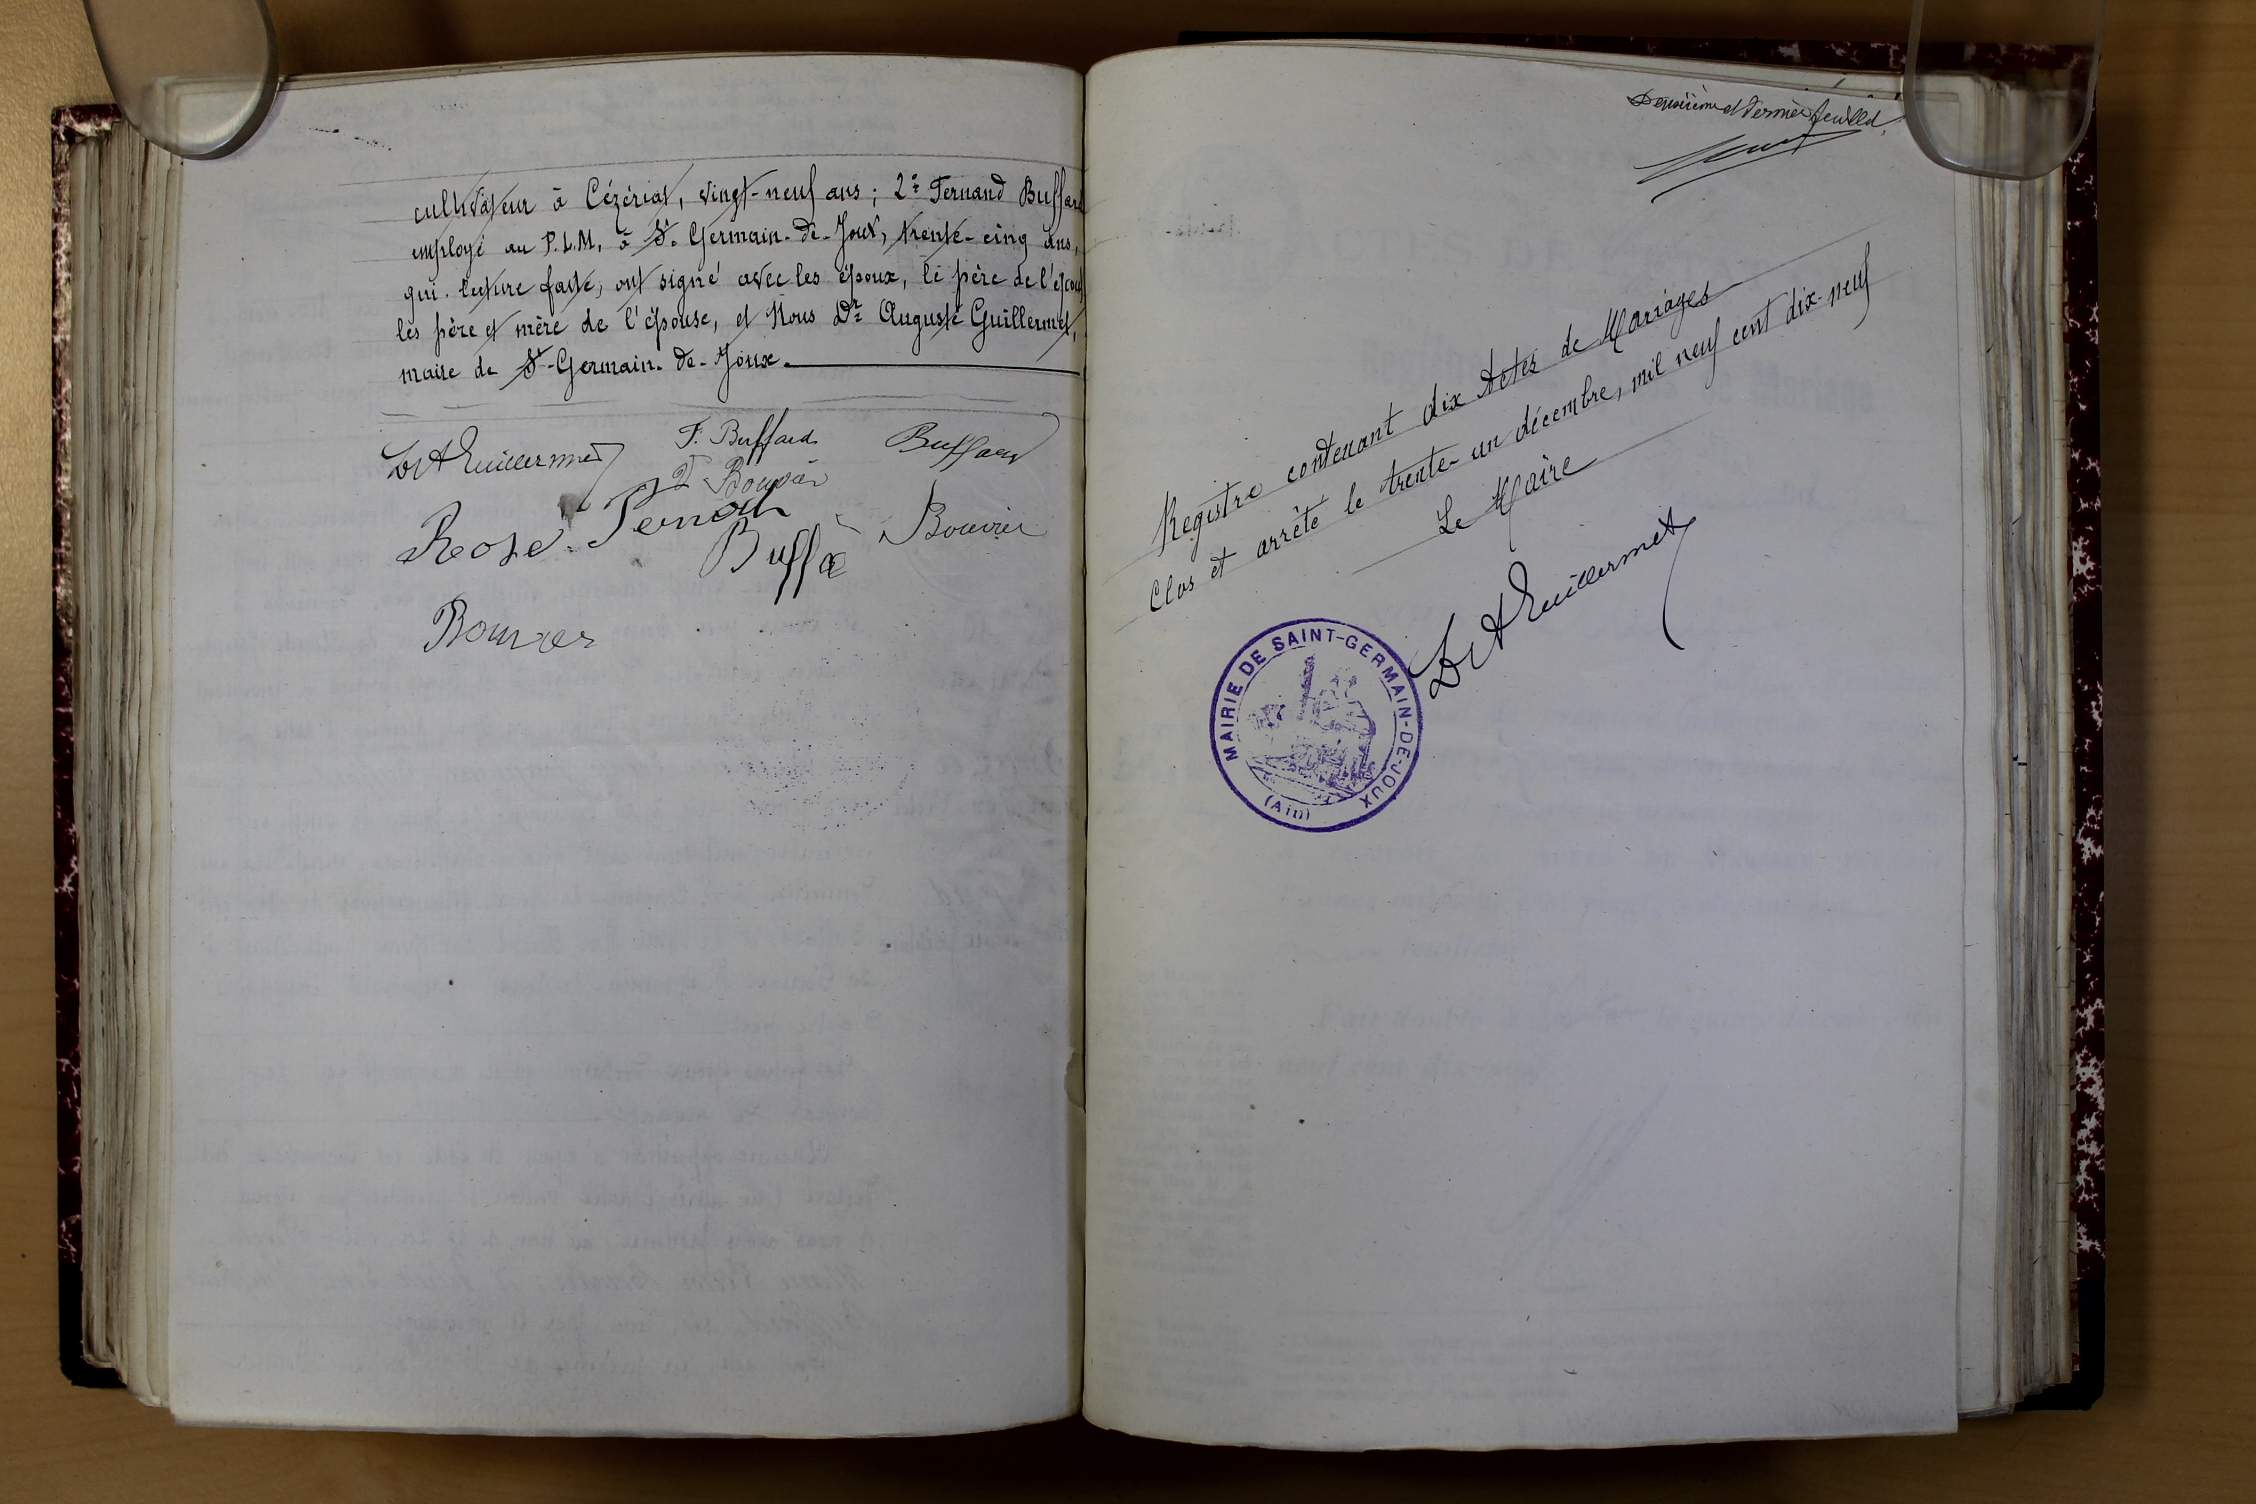 cultivateur à Cézériat, vingt-neuf ans ; 2º Fernand Buffard
employé au P.L.M, à St. Germain-de-Joux, trente-cinq ans,
qui lecture faite, ont signé avec les époux, le père de l'époux
les père et mère de l'épouse, et Nous Dr Auguste Guillermet,
maire de St-Germain-de-Joux.
Dr A Guillermet F. Buffard Buffard
Bouvier
Rose Bouvier
Buffa
Bouvier
Deuxième et dernier feuillet.
Registre contenant dix Actes de Mariages
Clos et arrêté le trente-un décembre, mil neuf cent dix-neuf
Le Maire
Dr A Guillermet
MAIRIE DE SAINT-GERMAIN-DE-JOUX
(Ain)